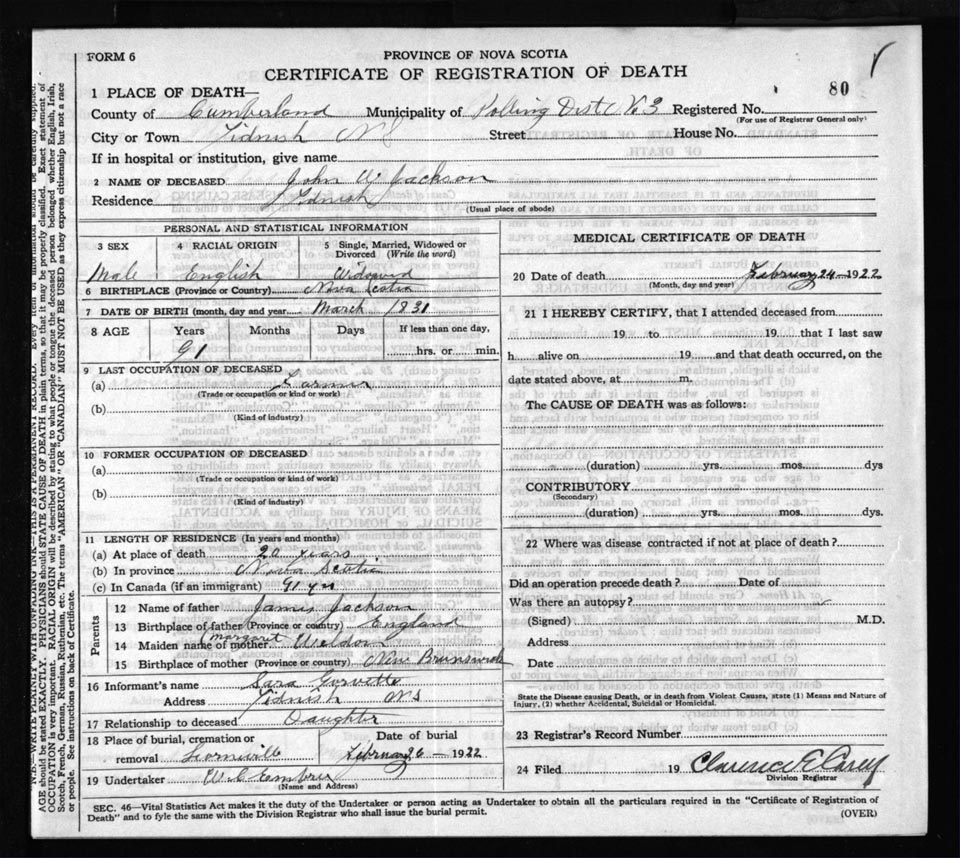 FORM 6
PROVINCE OF NOVA SCOTIA
CERTIFICATE OF REGISTRATION OF DEATH
80
1 PLACE OF DEATH—
County of Cumberland Municipality of Polling Dist No 3 Registered No.
(For use of Registrar General only)
City or Town Tidnish N S Street House No.
If in hospital or institution, give name
2 NAME OF DECEASED John W Jackson
Residence Tidnish
(Usual place of abode)
PERSONAL AND STATISTICAL INFORMATION
3 SEX 4 RACIAL ORIGIN 5 Single, Married, Widowed or Divorced (Write the word)
Male English Widowed
6 BIRTHPLACE (Province or Country) Nova Scotia
7 DATE OF BIRTH (month, day and year) March 1831
8 AGE Years Months Days If less than one day,
91 hrs. or min.
9 LAST OCCUPATION OF DECEASED
(a) Farmer
(Trade or occupation or kind or work)
(b)
(Kind of industry)
10 FORMER OCCUPATION OF DECEASED
(a)
(Trade or occupation or kind or work)
(b)
(Kind of industry)
11 LENGTH OF RESIDENCE (In years and months)
(a) At place of death 20 years
(b) In province Nova Scotia
(c) In Canada (if an immigrant) 91 yrs
Parents
12 Name of father James Jackson
13 Birthplace of father (Province or country) England
14 Maiden name of mother (Margaret Weldon
15 Birthplace of mother (Province or country) New Brunswick
16 Informant's name Sara
Address Tidnish N S
17 Relationship to deceased Daughter
18 Place of burial, cremation or removal Date of burial
February 26 - 1922
19 Undertaker W C Embree
(Name and Address)
MEDICAL CERTIFICATE OF DEATH
20 Date of death February 24 - 1922
(Month, day and year)
21 I HEREBY CERTIFY, that I attended deceased from
19 to 19 that I last saw
h alive on 19 and that death occurred, on the
date stated above, at m.
The CAUSE OF DEATH was as follows:
(duration) yrs. mos. dys
CONTRIBUTORY
(Secondary)
(duration) yrs. mos. dys.
22 Where was disease contracted if not at place of death?
Did an operation precede death? Date of
Was there an autopsy?
(Signed) M.D.
Address
Date
State the Disease causing Death, or in death from Violent Causes, state (1) Means and Nature of
Injury, (2) whether Accidental, Suicidal or Homicidal.
23 Registrar's Record Number
24 Filed 19 Clarence E Carey
Division Registrar
SEC. 46—Vital Statistics Act makes it the duty of the Undertaker or person acting as Undertaker to obtain all the particulars required in the "Certificate of Registration of
Death" and to fyle the same with the Division Registrar who shall issue the burial permit.
(OVER)
N.B.—WRITE PLAINLY WITH UNFADING INK—THIS IS A PERMANENT RECORD. Every item of information should be carefully supplied.
AGE should be stated EXACTLY. PHYSICIANS should STATE CAUSE OF DEATH in plain terms, so that it may be properly classified. Exact statement of
OCCUPATION is very important. RACIAL ORIGIN will be described by stating to what people or tongue the deceased person belonged whether English, Irish,
Scotch, French, German, Russian, Ruthenian, etc. The terms "AMERICAN" OR "CANADIAN" MUST NOT BE USED as they express citizenship but not a race
or people. See instructions on back of Certificate.